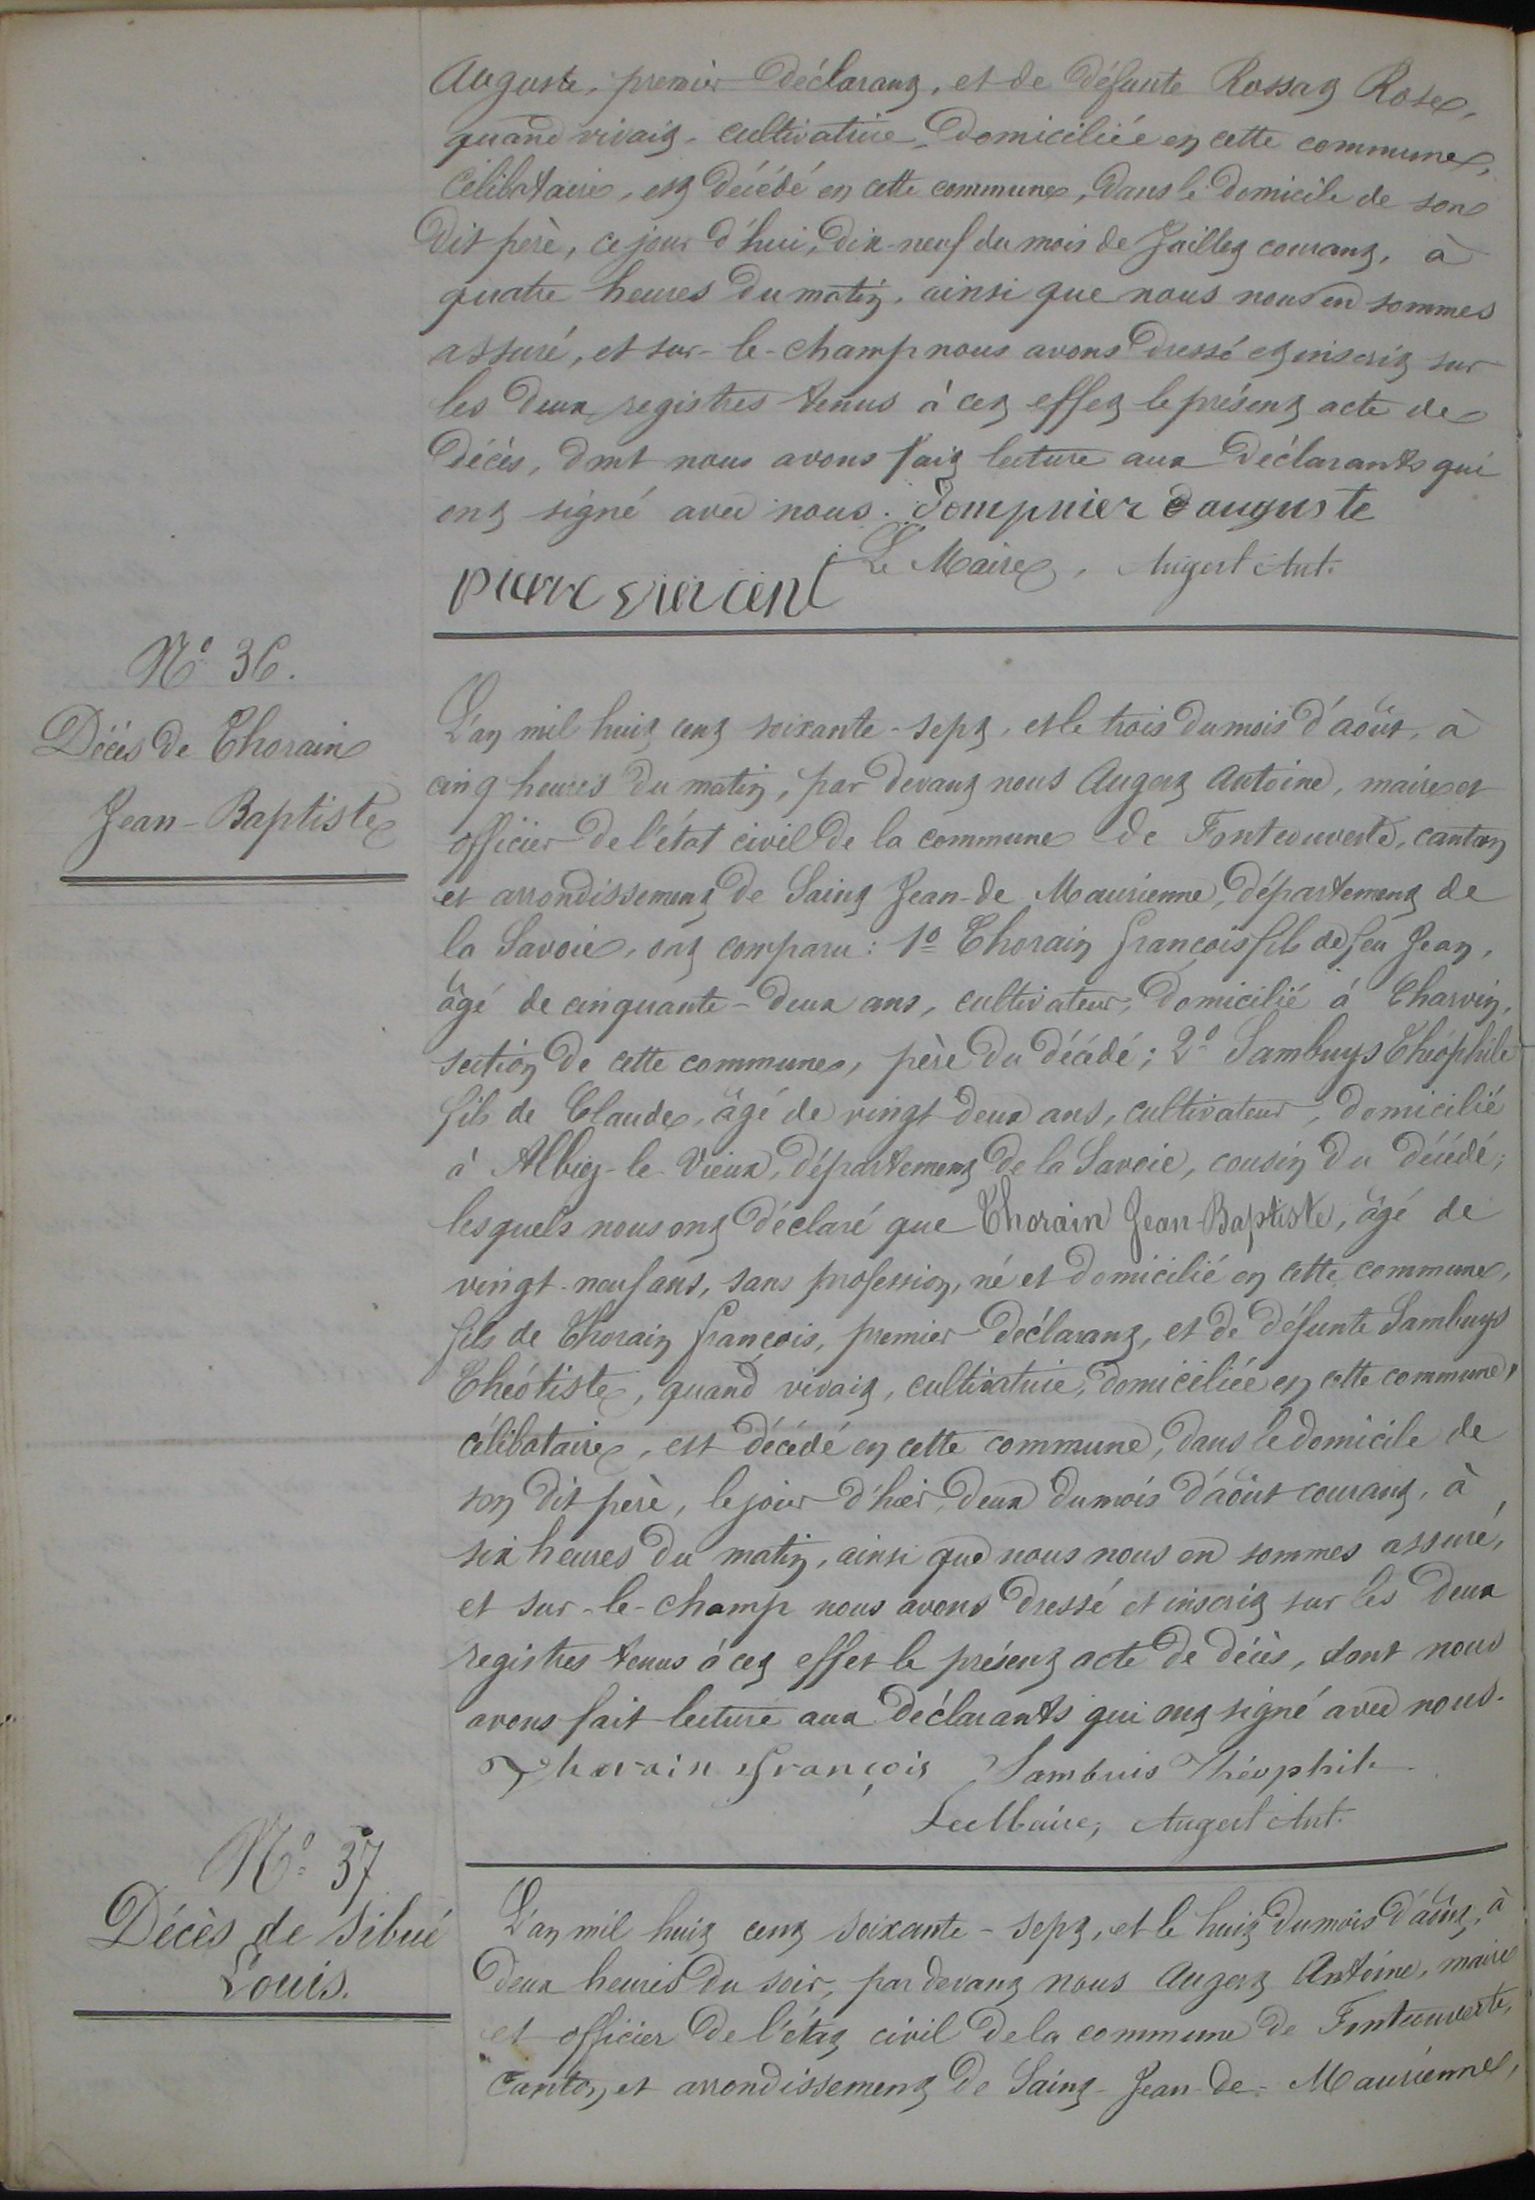 Auguste, premier déclarant, et de défunte Rossat Rose,
quand vivait, cultivatrice, domiciliée en cette commune,
célibataire, est décédé en cette commune, dans le domicile de son
dit père, ce jour d'hui, dix-neuf du mois de Juillet courant, à
quatre heures du matin, ainsi que nous nous en sommes
assuré, et sur-le-champ nous avons dressé et inscrit sur
les deux registres tenus à cet effet le présent acte de
décès, dont nous avons fait lecture aux déclarants qui
ont signé avec nous. Dompnier auguste
Le Maire, Augert Ant.
pierre vincent
N° 36.
Décès de Thorain
Jean-Baptiste
L'an mil huit cent soixante-sept, et le trois du mois d'août, à
cinq heures du matin, par devant nous Augert Antoine, maire et
officier de l'état civil de la commune de Fontcouverte, canton
et arrondissement de Saint Jean-de Maurienne, département de
la Savoie, ont comparu: 1° Thorain françois fils de feu Jean,
âgé de cinquante-deux ans, cultivateur, domicilié à Charvin,
section de cette commune, père du décédé; 2° Sambuys Théophile
fils de Claude, âgé de vingt deux ans, cultivateur, domicilié
à Albiez-le-Vieux, département de la Savoie, cousin du décédé;
lesquels nous ont déclaré que Thorain Jean-Baptiste, âgé de
vingt-neuf ans, sans profession, né et domicilié en cette commune,
fils de Thorain françois, premier déclarant, et de défunte Sambuys
Théotiste, quand vivait, cultivatrice, domiciliée en cette commune,
célibataire, est décédé en cette commune, dans le domicile de
son dit père, le jour d'hier, deux du mois d'août courant, à
six heures du matin, ainsi que nous nous en sommes assuré,
et sur-le-champ nous avons dressé et inscrit sur les deux
registres tenus à cet effet le présent acte de décès, dont nous
avons fait lecture aux déclarants qui ont signé avec nous.
Thorain françois Sambuis Théophile
Le Maire, Augert Ant.
N° 37
Décès de Sibué
Louis.
L'an mil huit cent soixante-sept, et le huit du mois d'août, à
deux heures du soir, par devant nous Augert Antoine, maire
et officier de l'état civil de la commune de Fontcouverte,
canton et arrondissement de Saint-Jean-de-Maurienne,